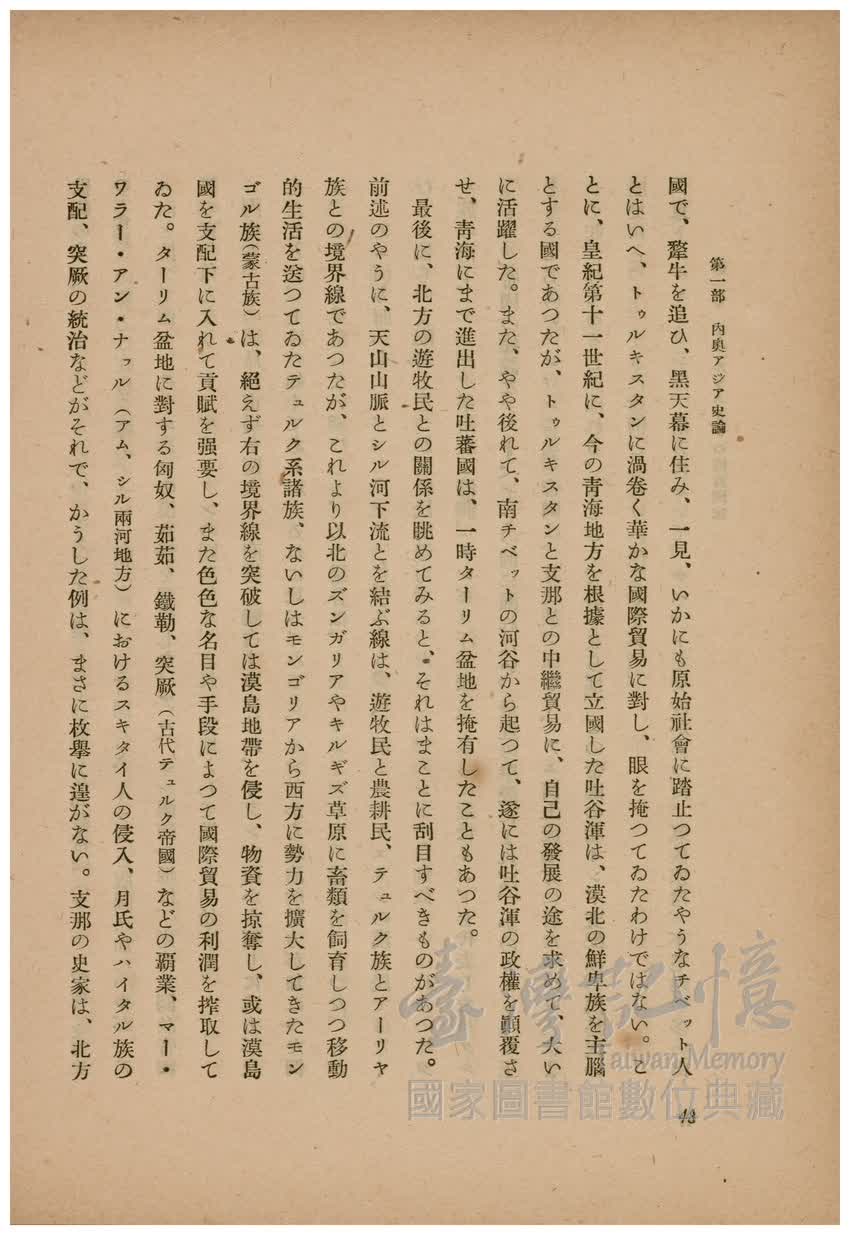 第一部　內奧アジア史論
國で、犛牛を追ひ、黑天幕に住み、一見、いかにも原始社會に踏止つてゐたやうなチベット人
とはいへ、トゥルキスタンに渦卷く華かな國際貿易に對し、眼を掩つてゐたわけではない。こ
とに、皇紀第十一世紀に、今の靑海地方を根據として立國した吐谷渾は、漠北の鮮卑族を主腦
とする國であつたが、トゥルキスタンと支那との中繼貿易に、自己の發展の途を求めて、大い
に活躍した。また、やや後れて、南チベットの河谷から起つて、遂には吐谷渾の政權を顚覆さ
せ、靑海にまで進出した吐蕃國は、一時ターリム盆地を掩有したこともあつた。
最後に、北方の遊牧民との關係を眺めてみると、それはまことに刮目すべきものがあつた。
前述のやうに、天山山脈とシル河下流とを結ぶ線は、遊牧民と農耕民、テュルク族とアーリヤ
族との境界線であつたが、これより以北のズンガリアやキルギズ草原に畜類を飼育しつつ移動
的生活を送つてゐたテュルク系諸族、ないしはモンゴリアから西方に勢力を擴大してきたモン
ゴル族（蒙古族）は、絕えず右の境界線を突破しては漠島地帶を侵し、物資を掠奪し、或は漠島
國を支配下に入れて貢賦を强要し、また色色な名目や手段によつて國際貿易の利潤を搾取して
ゐた。ターリム盆地に對する匈奴、茹茹、鐵勒、突厥（古代テュルク帝國）などの覇業、マー・
ワラー・アン・ナフル（アム、シル兩河地方）におけるスキタイ人の侵入、月氏やハイタル族の
支配、突厥の統治などがそれで、かうした例は、まさに枚擧に遑がない。支那の史家は、北方
48
臺灣記憶
Taiwan Memory
國家圖書館數位典藏